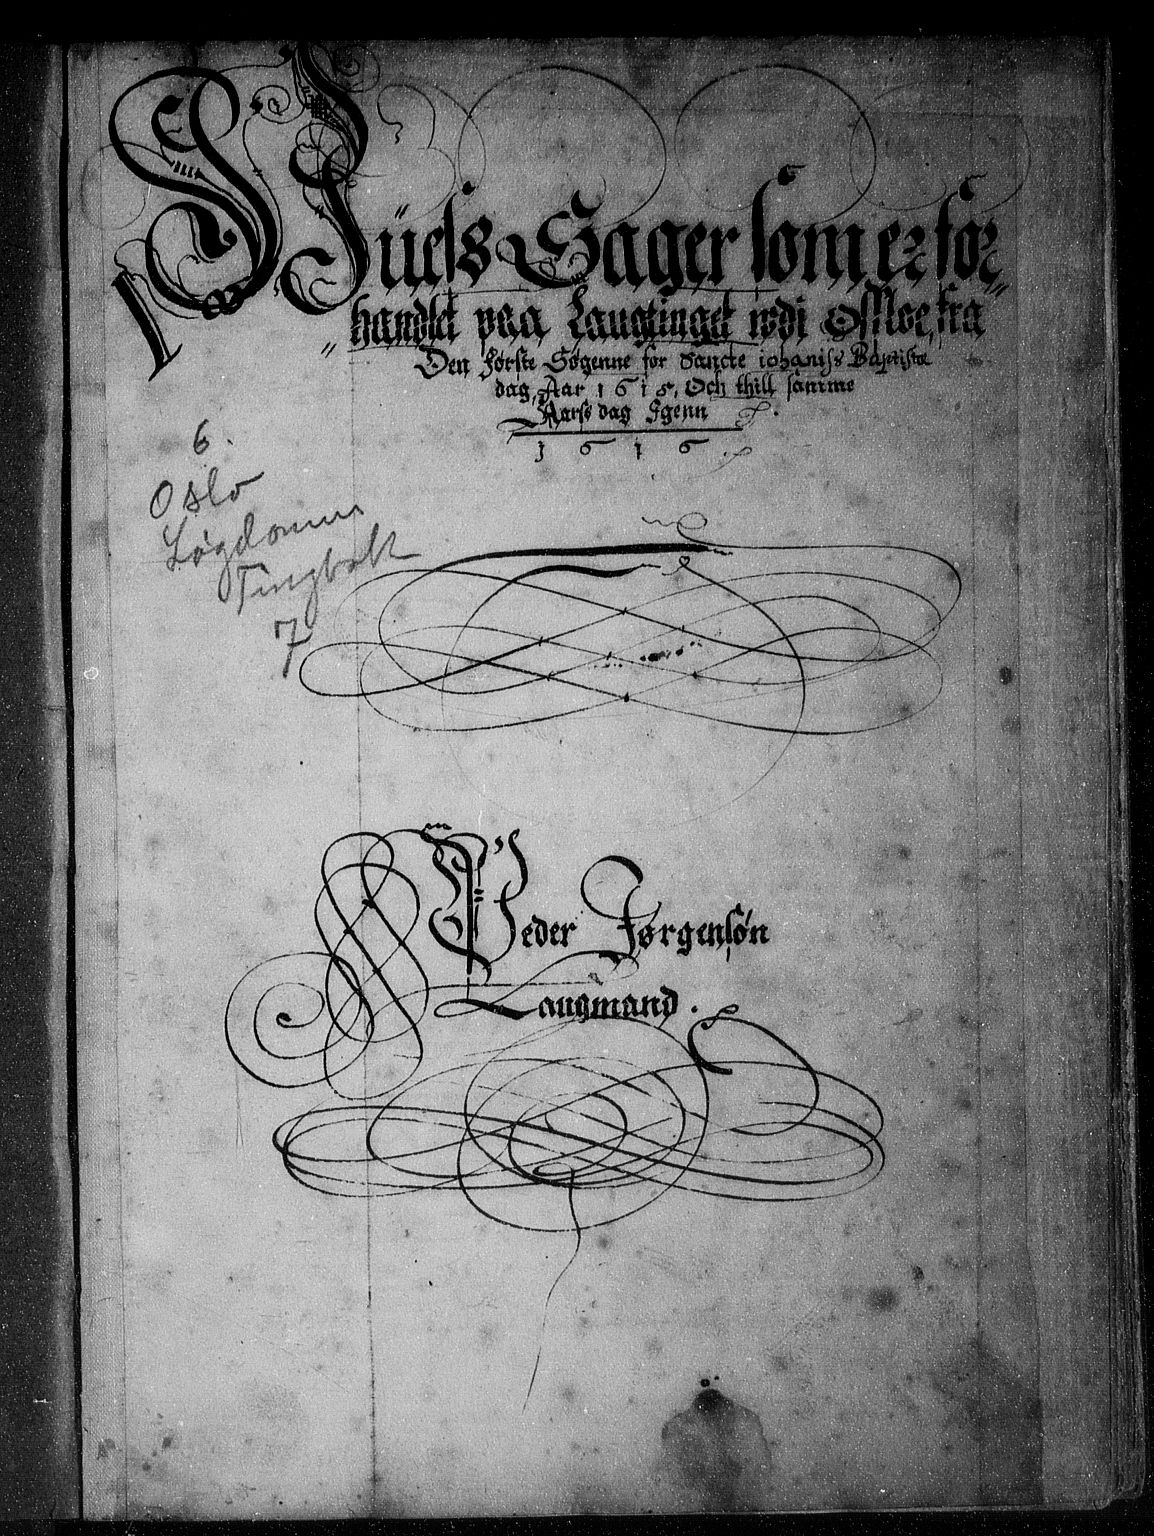 Düels Sager som er for¬
handlet paa Laugtinget wdi Opsloe, fra
Den Første Søgenne for Sancte iohanniss Baptistæ
dag, Aar 1615, Och thill samme
Aarss dag Igenn
1616
6.
Oslo
Løgdømme
Tingbok
7
Peder Jørgensøn
Laugmand.